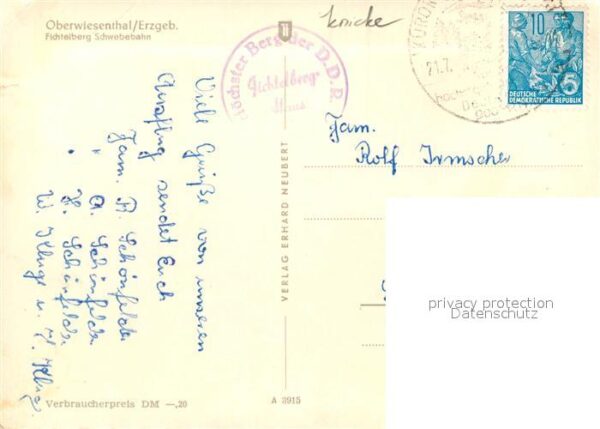 Oberwiesenthal/Erzgeb.
Fichtelberg Schwebebahn
knicke
Höchster Berg der D.D.R.
Fichtelberg-
Haus
21.7.
10
5
DEUTSCHE
DEMOKRATISCHE REPUBLIK
Viele Grüße von unserem
Ausflug sendet Euch
Fam. R. Schönfelder
" A. Schönfelder
" H. Schönfelder
W. Kluge u.
VERLAG ERHARD NEUBERT
Fam.
Rolf Irmscher
privacy protection
Datenschutz
Verbraucherpreis DM —,20
A 3915